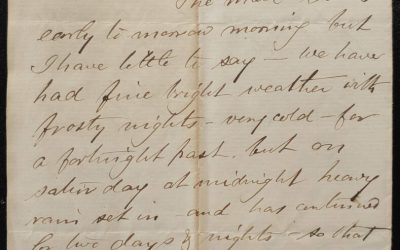 The
early to morrow morning but
I have little to say – we have
had fine bright weather with
frosty nights – very cold – for
a fortnight past. but on
saturday at midnight heavy
rain set in – and has continued
for two days & nights – so that